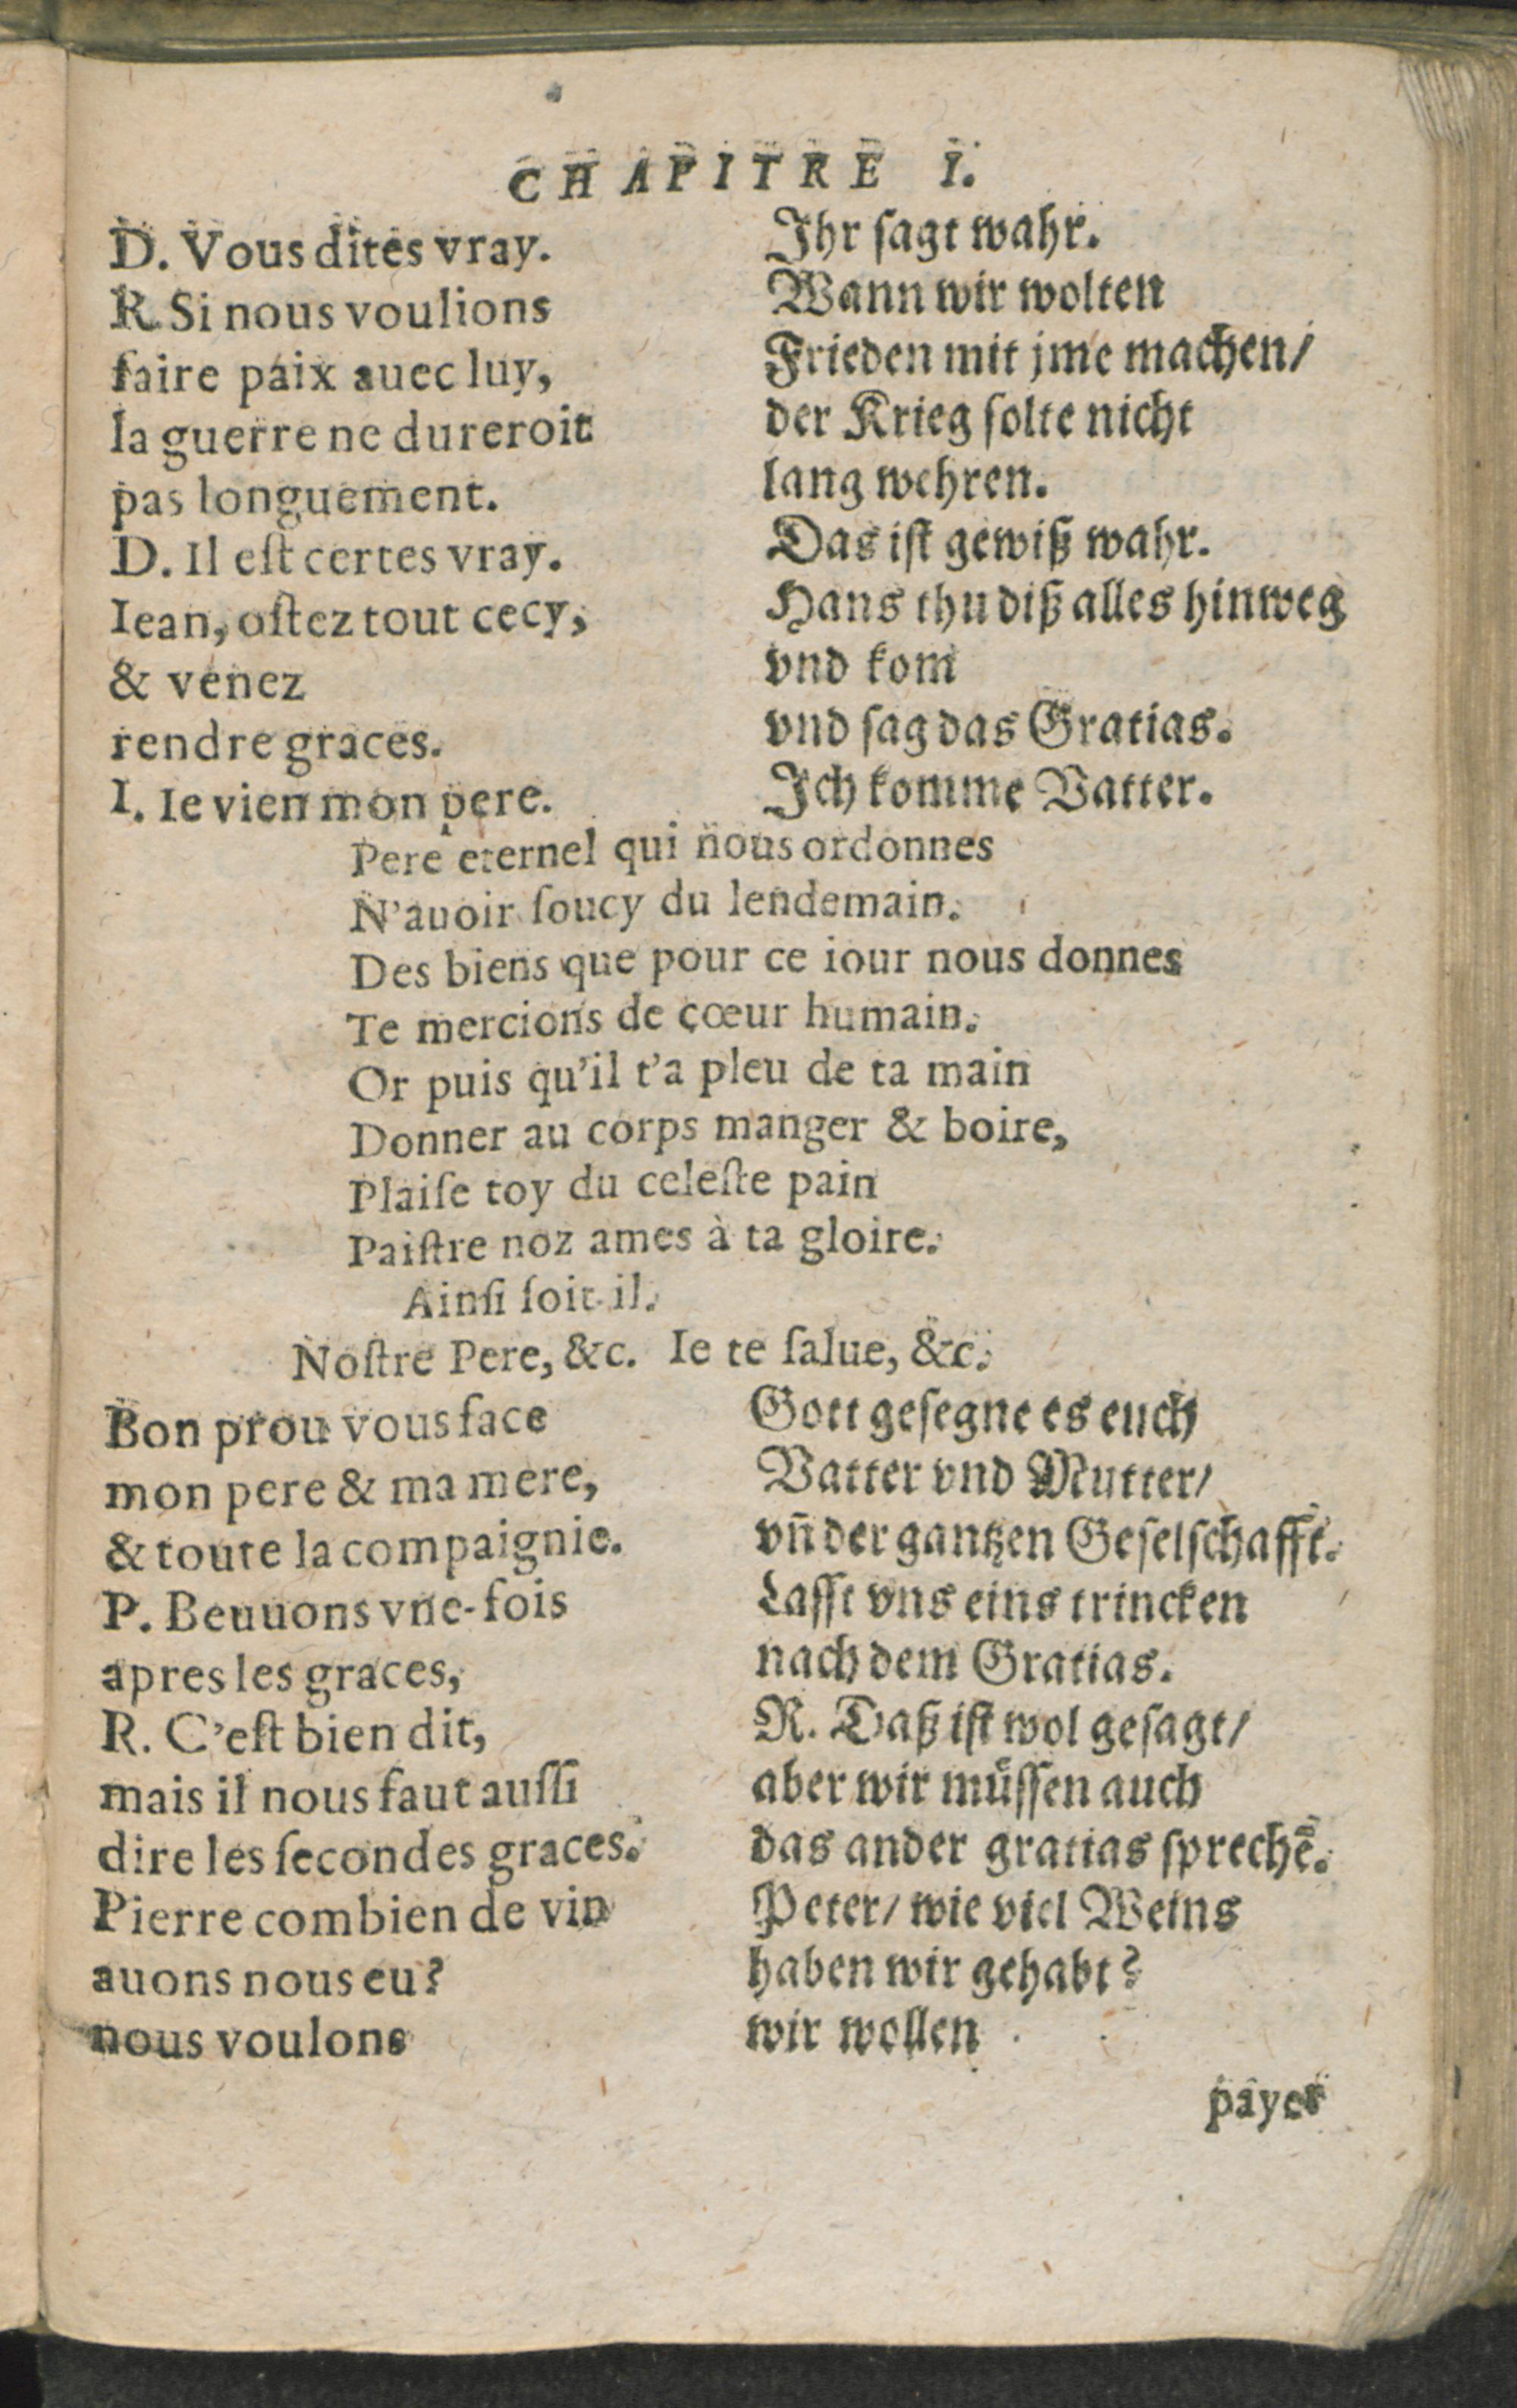 CHAPITRE I.
D. Vous dites vray.
R. Si nous voulions
faire paix auec luy,
la guerre ne dureroit
pas longuement.
D. Il eſt certes vray.
Iean, oſtez tout cecy,
& venez
rendre graces.
I. Ie vien mon pere.
Ihr ſagt wahr.
Wann wir wolten
Frieden mit jme machen/
der Krieg ſolte nicht
lang wehren.
Das iſt gewiß wahr.
Hans thu diß alles hinweg
vnd kom
vnd ſag das Gratias.
Ich komme Vatter.
Pere eternel qui nous ordonnes
N'auoir ſoucy du lendemain.
Des biens que pour ce iour nous donnes
Te mercions de cœur humain.
Or puis qu'il t'a pleu de ta main
Donner au corps manger & boire,
Plaiſe toy du celeſte pain
Paiſtre noz ames à ta gloire.
Ainſi ſoit il.
Noſtre Pere, &c. Ie te ſalue, &c.
Bon prou vous face
mon pere & ma mere,
& toute la compaignie.
P. Beuuons vne-fois
apres les graces,
R. C'eſt bien dit,
mais il nous faut auſſi
dire les ſecondes graces.
Pierre combien de vin
auons nous eu?
nous voulons
Gott geſegne es euch
Vatter vnd Mutter/
vn̄ der gantzen Geſelſchafft.
Laſſt vns eins trincken
nach dem Gratias.
R. Daß iſt wol geſagt/
aber wir müſſen auch
das ander gratias ſprechē.
Peter/ wie viel Weins
haben wir gehabt?
wir wollen
payer